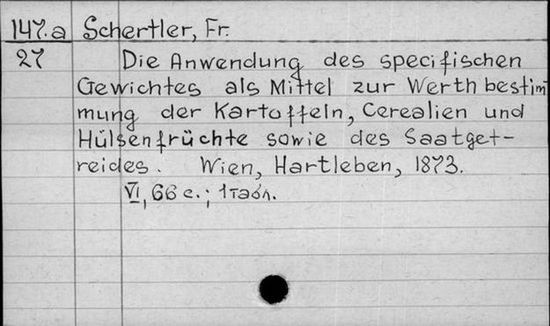 147.a Schertler, Fr.
27 Die Anwendung des specifischen
Gewichtes als Mittel zur Werthbestim
mung der Kartoffeln, Cerealien und
Hülsenfrüchte sowie des Saatget-
reides. Wien, Hartleben, 1873.
VI, 66 с.; 1 табл.